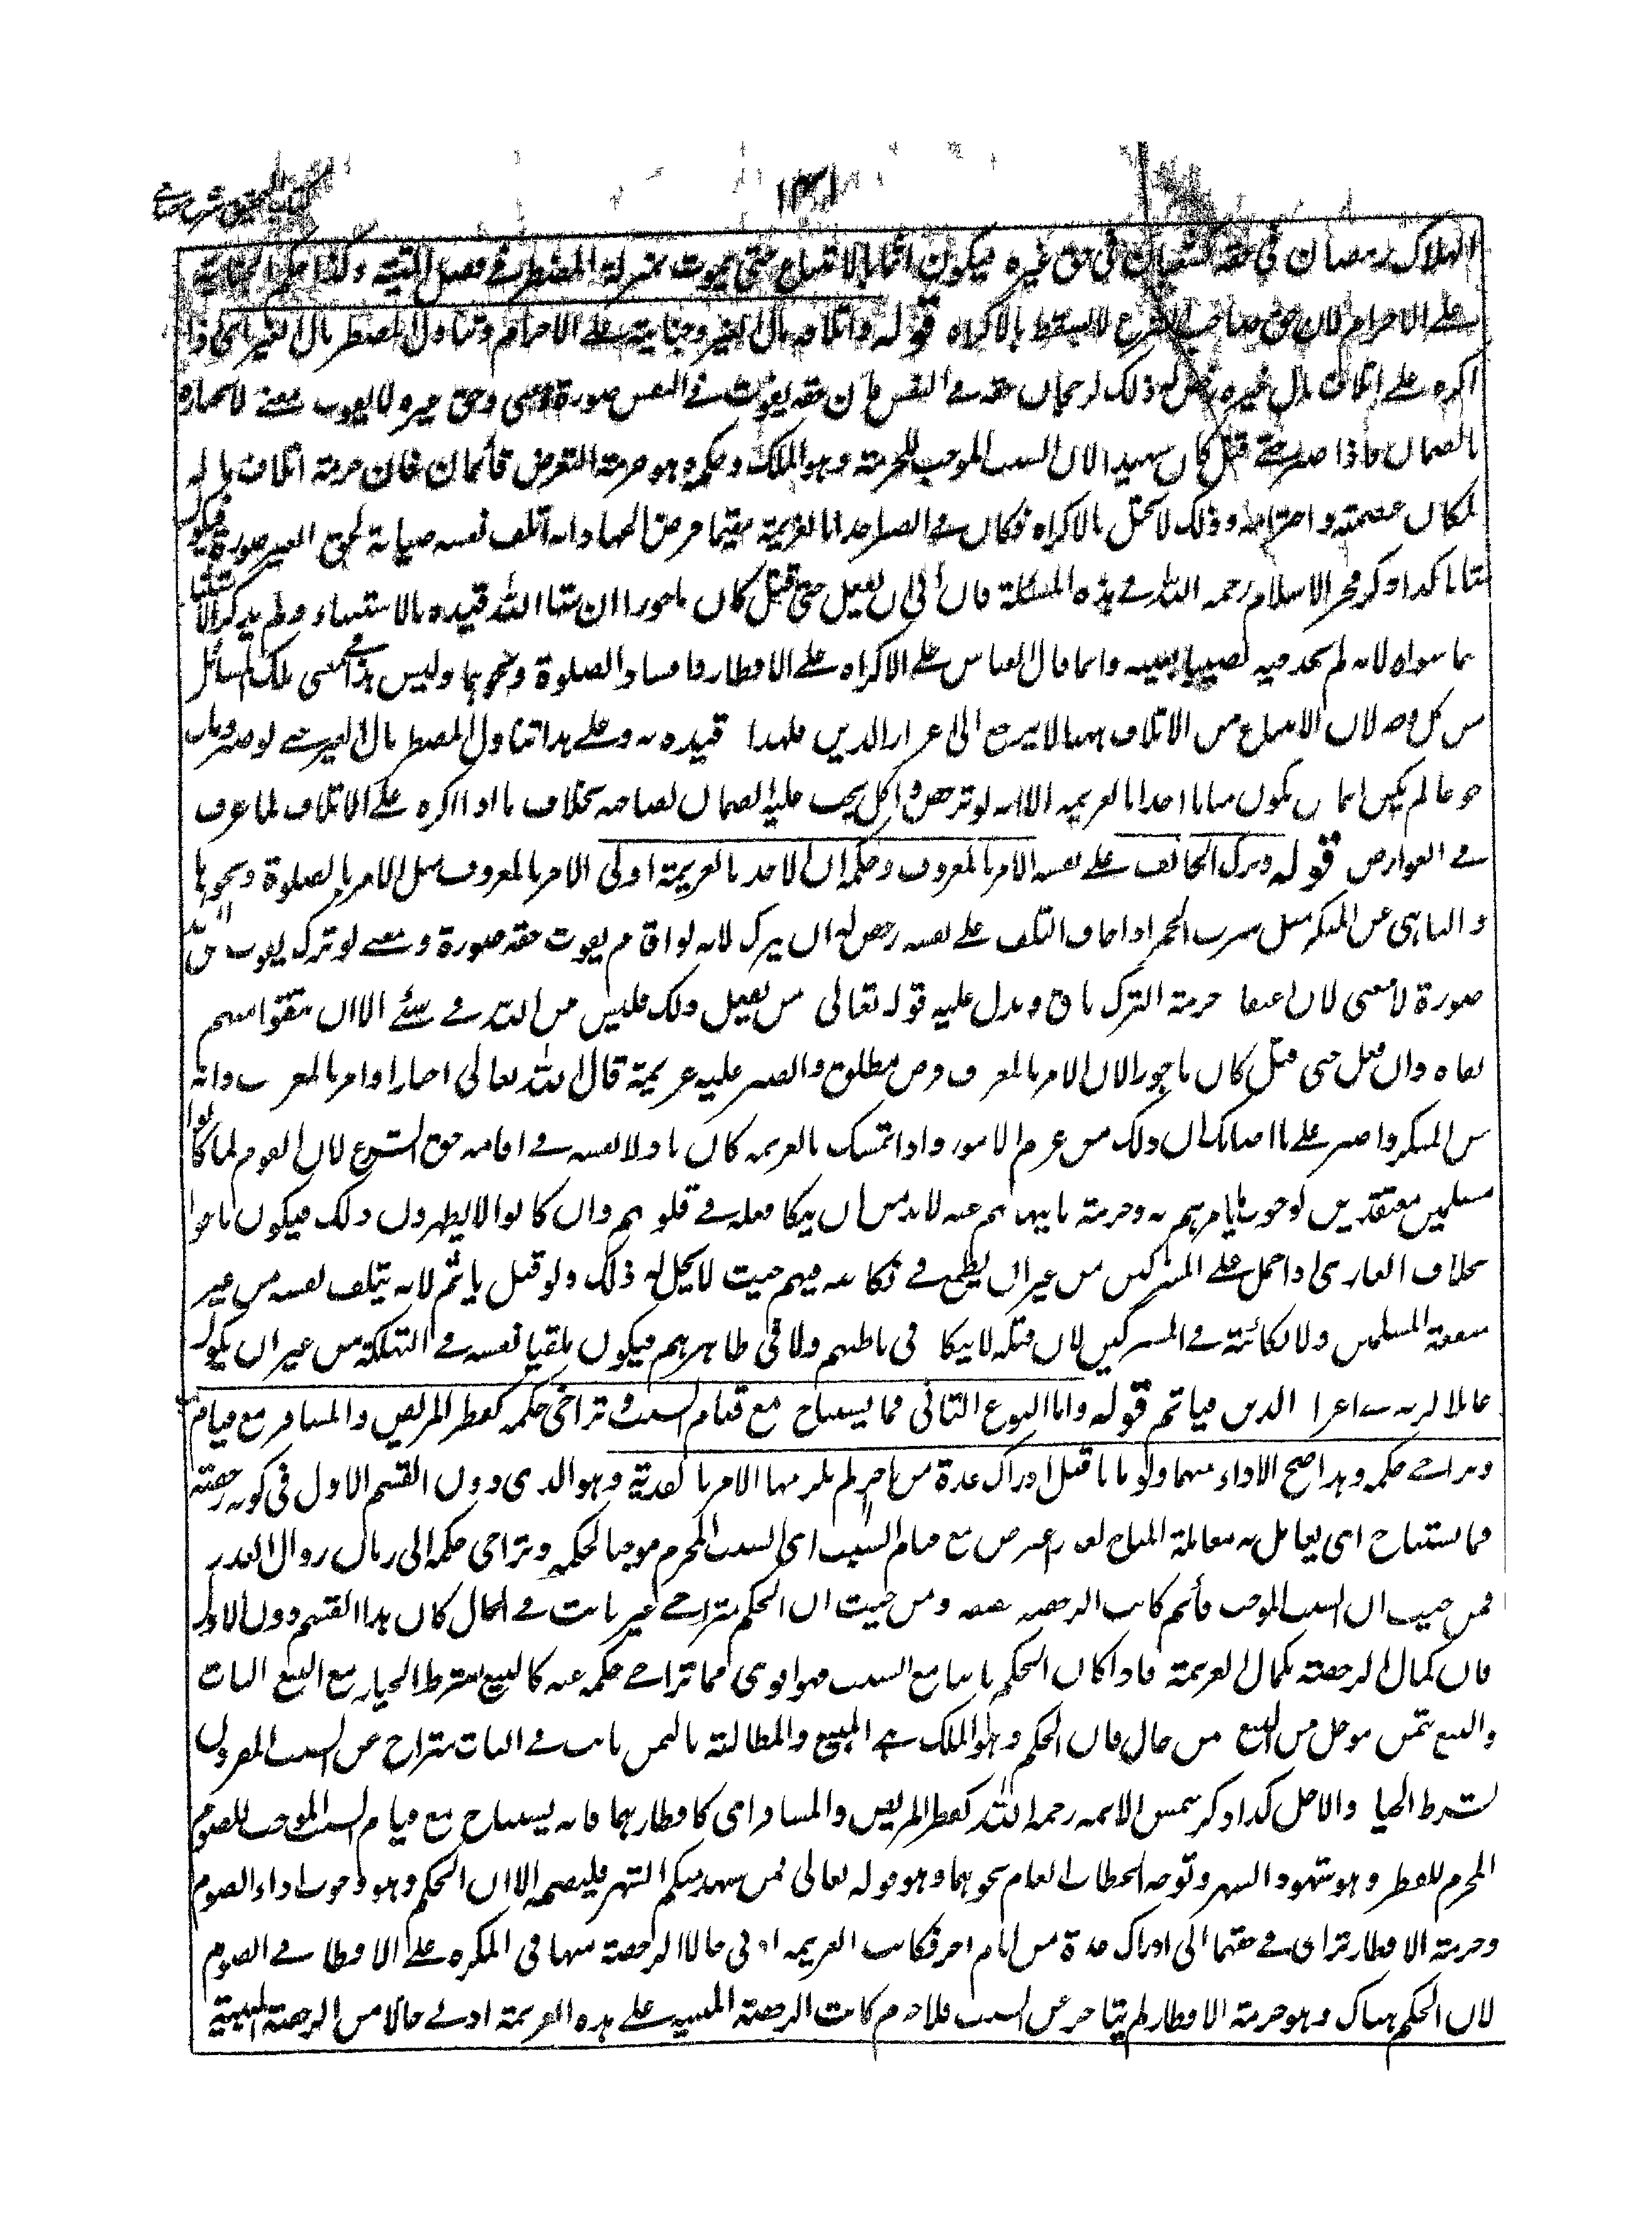 ١٣١
الهلاك رمضان في حقه كشعبان في حق غيره فيكون آثما بالامتناع حتى يموت بمنزلة المضطر في فصل الميتة وكذا حكم الجناية
على الاحرام لان حق صاحب الشرع لا يسقط بالاكراه قوله واتلافه مال الغير وجنايته على الاحرام وتناول المضطر مال الغير اى اذا
اكره على اتلاف مال غيره رخص له ذلك لرجحان حقه في النفس فان حقه يفوت في النفس صورة ومعنى وحق غيره لا يفوت معنى لانجباره
بالضمان فاذا صبر حتى قتل كان شهيدا لان السبب الموجب للحرمة وهو الملك وحكمه وهو حرمة التعرض قائمان فان حرمة اتلاف ماله
لمكان عصمته واحترامه وذلك لا يختل بالاكراه فكان في الصبر اخذا بالعزيمة مقيما فرض الجهاد انه اتلف نفسه صيانة لحق الغير صورة فيكون
مثابا كذا ذكر فخر الاسلام رحمه الله في هذه المسئلة فان أبى ان يفعل حتى قتل كان ماجورا ان شاء الله قيده بالاستثناء ولم يذكر الاستثناء
فيما سواه لانه لم يجد فيه نصا بعينه وانما قال بالقياس على الاكراه على الافطار وافساد الصلوة ونحوهما وليس هذا في معنى تلك المسائل
من كل وجه لان الامتناع من الاتلاف ههنا لا يرجع الى اعزاز الدين فلهذا قيده به وعلى هذا تناول المضطر مال الغير حتى لو صبر ومات
جوعا لم يكن آثما بل يكون مثابا اخذا بالعزيمة الا انه لو ترخص واكل يجب عليه الضمان لصاحبه بخلاف ما اذا اكره على الاتلاف لما عرف
في العوارض قوله وترك الخائف على نفسه الامر بالمعروف وحكمه ان الاخذ بالعزيمة اولى الامر بالمعروف مثل الامر بالصلوة ونحوها
والناهى عن المنكر مثل شرب الخمر اذا خاف التلف على نفسه رخص له ان يترك لانه لو اقام يفوت حقه صورة ومعنى لو ترك يفوت حق الله
صورة لا معنى لان اعتقاد حرمة الترك باق ويدل عليه قوله تعالى من يفعل ذلك فليس من الله في شئ الا ان تتقوا منهم
تقاه وان فعل حتى قتل كان ماجورا لان الامر بالمعروف فرض مطلوب والصبر عليه عزيمة قال الله تعالى اخبارا وامر بالمعروف وانه
عن المنكر واصبر على ما اصابك ان ذلك من عزم الامور واذا تمسك بالعزيمة كان باذلا نفسه في اقامة حق الشرع لان القوم لما كانوا
مسلمين معتقدين لوجوب ما يامرهم به وحرمة ما ينهاهم عنه لا بد من ان ينكا فعله في قلوبهم وان كانوا لا يظهرون ذلك فيكون ماجورا
بخلاف الغازى اذا حمل على المشركين من غير ان يطمع في نكايته فيهم حيث لا يحل له ذلك ولو قتل ياثم لانه يتلف نفسه من غير
منفعة المسلمين ولا نكاية في المشركين لان قتله لا ينكا في باطنهم ولا في ظاهرهم فيكون ملقيا نفسه في التهلكة من غير ان يكون
عاملا لربه في اعزاز الدين فياثم قوله واما النوع الثانى فما يستباح مع قيام السبب وتراخى حكمه كفطر المريض والمسافر مع قيام السبب
وتراخى حكمه وبهذا صح الاداء منهما ولو ماتا قبل ادراك عدة من ايام اخر لم يلزمهما الامر بالفدية وهو الذى دون القسم الاول في كونه رخصة
فما يستباح اى يعامل به معاملة المباح لعذر اعترض مع قيام السبب اى السبب المحرم موجبا لحكمه وتراخى حكمه الى زمان زوال العذر
فمن حيث ان السبب الموجب قائم كانت الرخصة حقيقة ومن حيث ان الحكم متراخى غير ثابت في الحال كان هذا القسم دون الاول
فان كمال الرخصة بكمال العزيمة فاذا كان الحكم ثابتا مع السبب فهو اقوى مما تراخى حكمه عنه كالبيع بشرط الخيار مع البيع البات
والبيع بثمن مؤجل مع البيع بثمن حال فان الحكم وهو الملك في المبيع والمطالبة بالثمن ثابت في البات متراخ عن السبب المقرون
بشرط الخيار والاجل كذا ذكر شمس الائمة رحمه الله كفطر المريض والمسافر اى كافطارهما فانه يستباح مع قيام السبب الموجب للصوم
المحرم للفطر وهو شهود الشهر وتوجه الخطاب العام نحوهما وهو قوله تعالى فمن شهد منكم الشهر فليصمه الا ان الحكم وهو وجوب اداء الصوم
وحرمة الافطار تراخى في حقهما الى ادراك عدة من ايام اخر فكانت العزيمة ادنى حالا الرخصة منها في المكره على الافطار في الصوم
لان الحكم هناك وهو حرمة الافطار لم يتاخر عن السبب فلا جرم كانت الرخصة المبنية على هذه العزيمة ادنى حالا من الرخصة المبنية